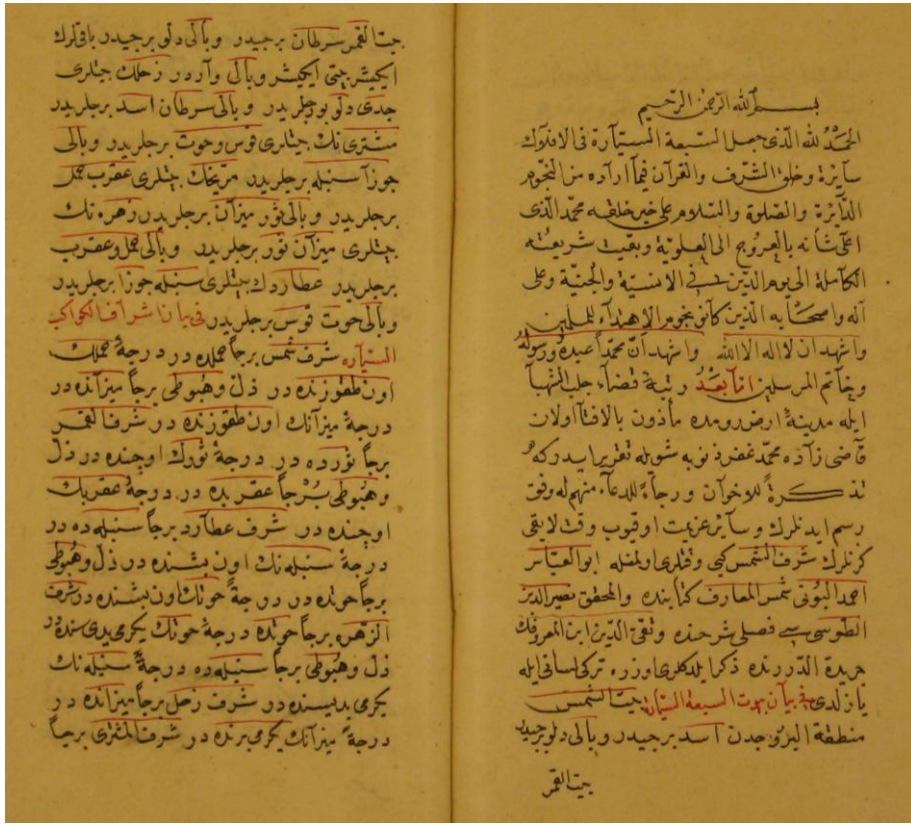 بسم الله الرحمن الرحيم
الحمد لله الذى جعل السبعة السيارة فى الافلاك
سايرة وخلق الشرف والقرآن فيما اراده من النجوم
الدايرة والصلوة والسلام على خير خلقه محمد الذى
اعلى شانه بالعروج الى العلوية وبقيت شريعته
الكاملة الى يوم الدين فى الانسية والجنية وعلى
آله واصحابه الذين كانو نجوم الاهتداء للمسلمين
واشهد ان لا اله الا الله واشهد ان محمدا عبده ورسوله
وخاتم المرسلين اما بعد رتبة قضاء جلب الشهبا
ايله مدينة ارضرومده مأذون بالافتا اولان
قاضى زاده محمد غفر ذنوبه شويله تقرير ايدركه
تذكرة للاخوان ورجاء للدعاء منهم له وفق
رسم ايدنلرك وساير عزيمت اوقيوب وقت لايقى
كزنلرك شرف الشمس كبى وقتلرى اولمغله ابو العباس
احمد البونى شمس المعارف كتابنده والمحقق نصير الدين
الطوسى سى فصلى شرحنده وتقى الدين ابن المعروفك
جريدة الدررنده ذكر ايلدكلرى اوزره تركى لسانى ايله
يازلدى فى بيان بيوت السبعة السيارة بيت الشمس
منطقة البروجدن اسد برجيدر وبالى دلو برجيدر
بيت القمر
بيت القمر سرطان برجيدر وبالى دلو برجيدر باقيلرك
ايكيشر بيتى ايكيشر وبالى واردر زحلك بيتلرى
جدى دلو برجلريدر وبالى سرطان اسد برجلريدر
مشترى نك بيتلرى قوس وحوت برجلريدر وبالى
جوزا سنبله برجلريدر مريخك بيتلرى عقرب حمل
برجلريدر وبالى ثور ميزان برجلريدر زهره نك
بيتلرى ميزان ثور برجلريدر وبالى حمل وعقرب
برجلريدر عطاردك بيتلرى سنبله جوزا برجلريدر
وبالى حوت قوس برجلريدر فى بيان اشراف الكواكب
السياره شرف شمس برجا حملده در درجۀ حملك
اون طقوزنده در ذل وهبوطى برجا ميزانده در
درجۀ ميزانك اون طقوزنده در شرف القمر
برجا ثورده در درجۀ ثورك اوچنده در ذل
وهبوطى برجا عقربده در درجۀ عقربك
اوچنده در شرف عطارد برجا سنبله ده در
درجۀ سنبله نك اون بشنده در ذل وهبوطى
برجا حوتده در درجۀ حوتك اون بشنده در شرف
الزهره برجا حوتده درجۀ حوتك يكرمى يديسنده در
ذل وهبوطى برجا سنبله ده درجۀ سنبله نك
يكرمى يديسنده در شرف زحل برجا ميزانده در
درجۀ ميزانك يكرمى برنده در شرف المشترى برجا